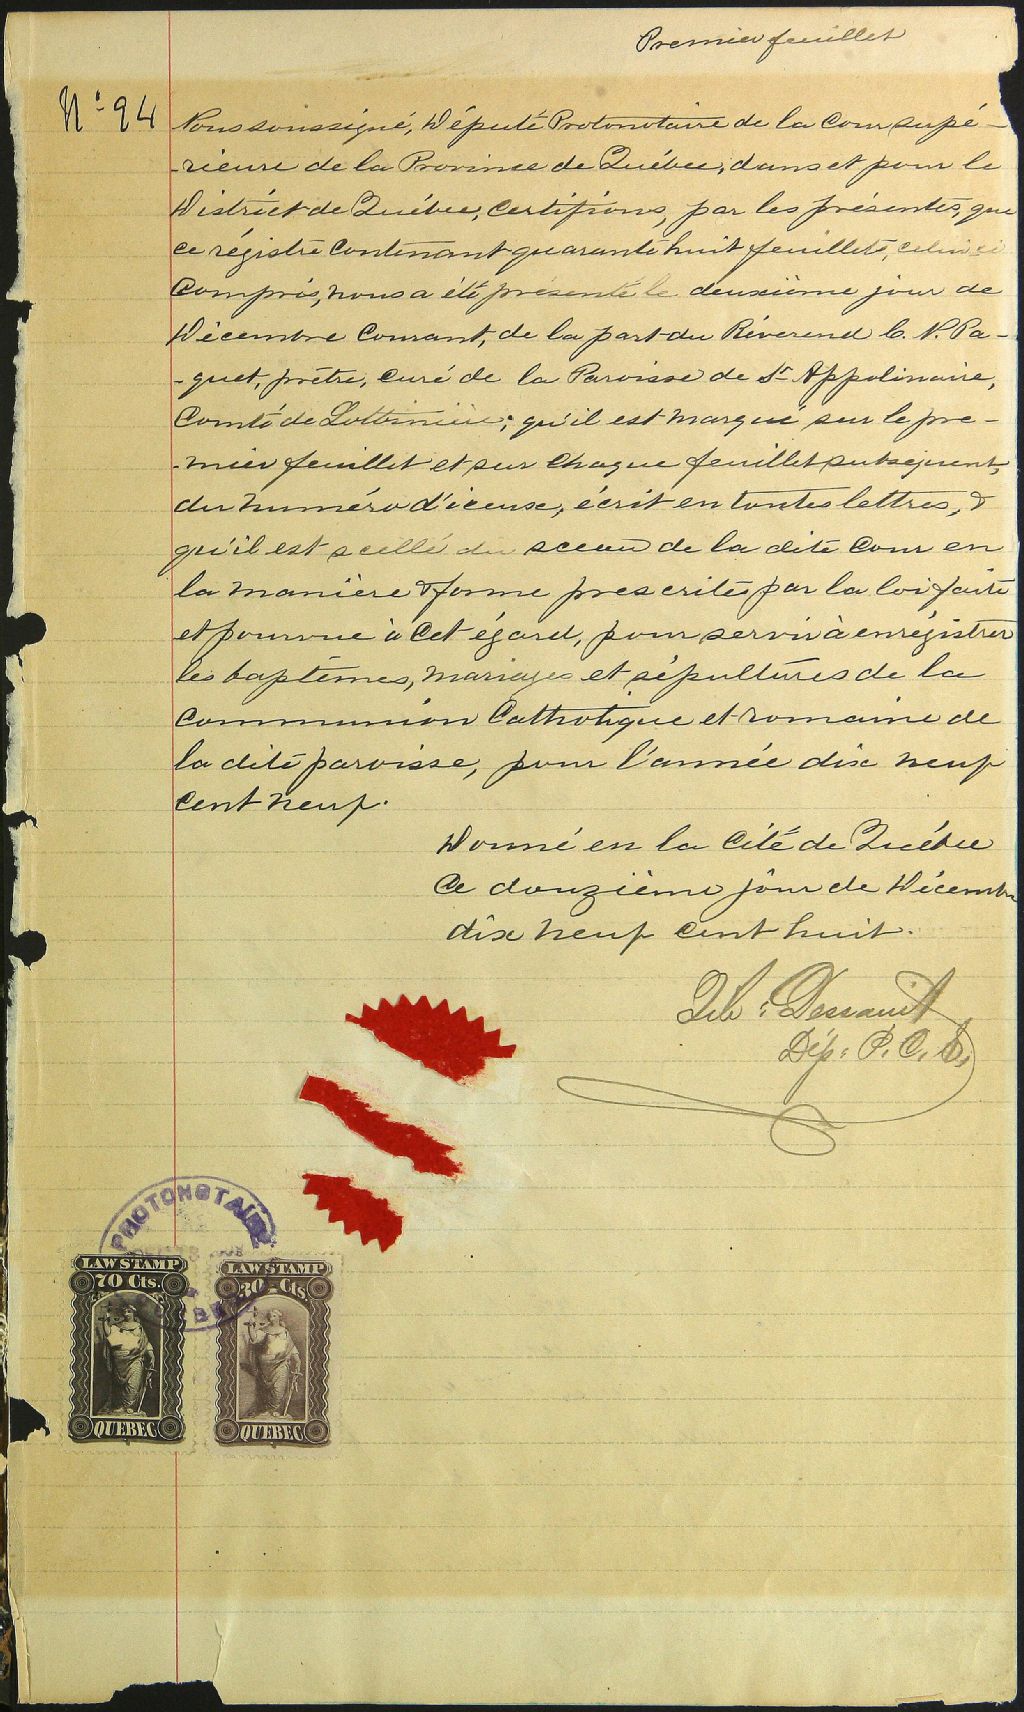 Premier feuillet
No 94
Nous soussigné, Député Protonotaire de la Cour supé-
-rieure de la Province de Québec, dans et pour le
District de Québec, certifions, par les présentes, que
ce régistre contenant quarante huit feuillets, celui ci
compris, nous a été présenté le deuxième jour de
Décembre courant, de la part du Révérend C. N. Pa-
-quet, prêtre, curé de la Paroisse de St Appolinaire,
Comté de Lotbinière; qu'il est marqué sur le pre-
-mier feuillet et sur chaque feuillet subséquent,
du numéro d'iceux, écrit en toutes lettres, &
qu'il est scellé du sceau de la dite Cour en
la manière & forme prescrites par la loi faite
et pourvue à cet égard, pour servir à enrégistrer
les baptêmes, mariages et sépultures de la
Communion Catholique et romaine de
la dite paroisse, pour l'année dix neuf
cent neuf.
Donné en la Cité de Québec
Ce douzième jour de Décembre
dix neuf cent huit.
Dessault
Dép: P. C. S.
PROTONOTAIRE
LAW STAMP
70 Cts.
QUEBEC
LAW STAMP
30 Cts.
QUEBEC